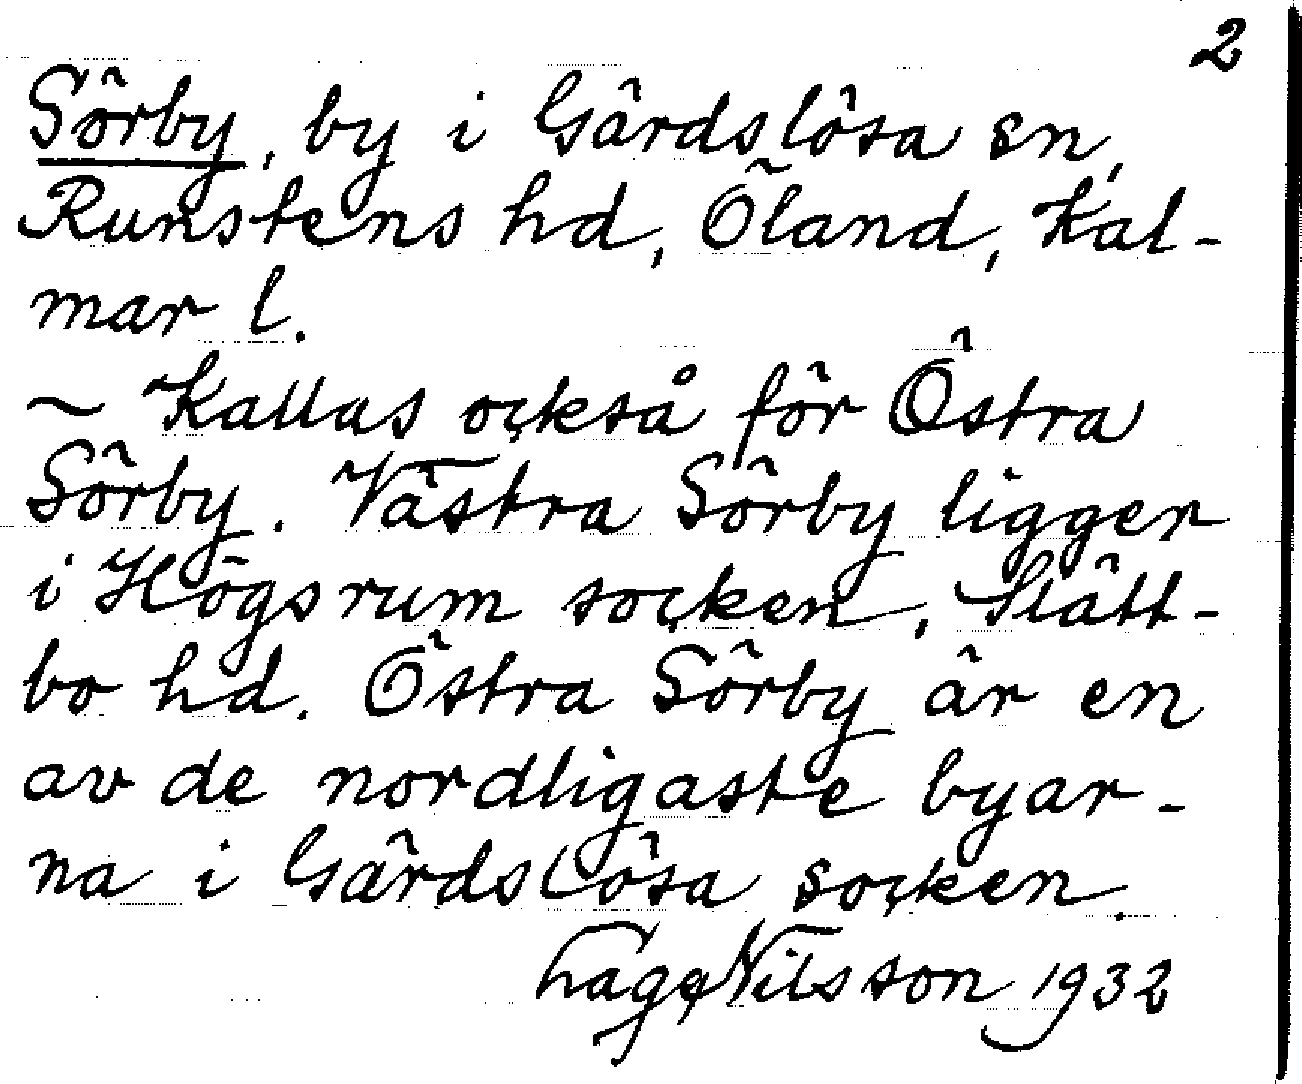 2
Sörby, by i Gärdslösa sn,
Runstens hd, Öland, Kal-
mar l.
~ Kallas också för Östra
Sörby. Västra Sörby ligger
i Högsrum socken, Slätt-
bo hd. Östra Sörby är en
av de nordligaste byar-
na i Gärdslösa socken.
Tage Nilsson 1932